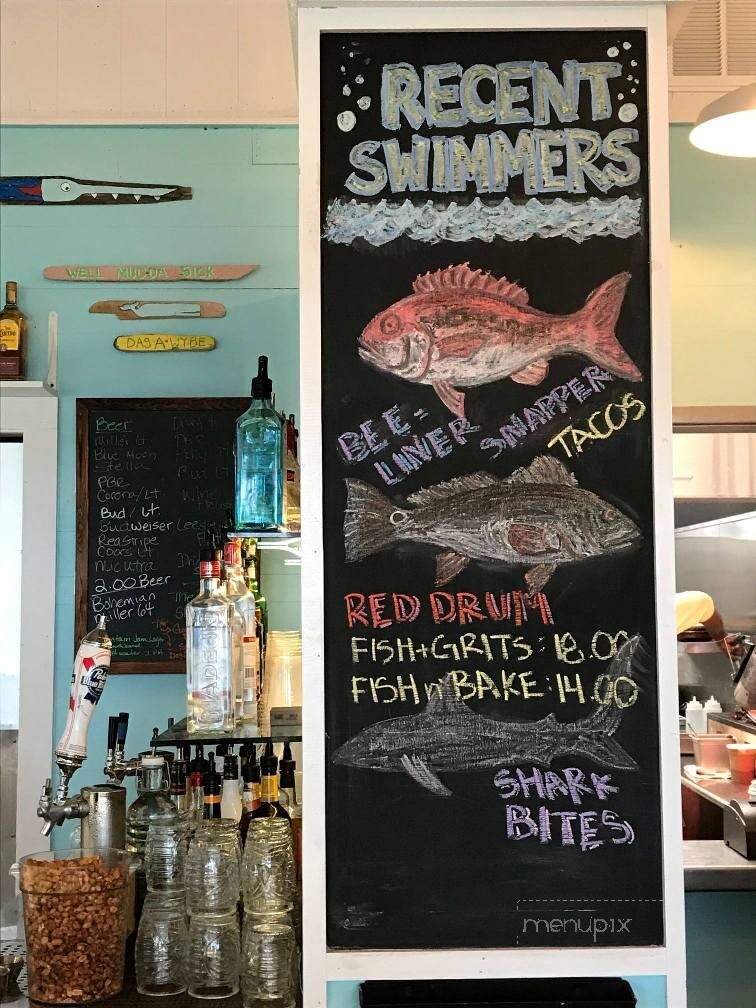 RECENT
SWIMMERS
BEE-
LINER SNAPPER
TACOS
RED DRUM
FISH+GRITS: 18.00
FISH n' BAKE: 14.00
SHARK
BITES
WELL MUDDA SICK
DAS-A-WYBE
Beer
Miller Lt
Blue Moon
Stella
PBR
Corona/Lt
Bud/Lt.
Budweiser
Red Stripe
Coors Lt
Mic Ultra
2.00 Beer
Bohemian
Miller Lt
Pabst
Blue Ribbon
menupix